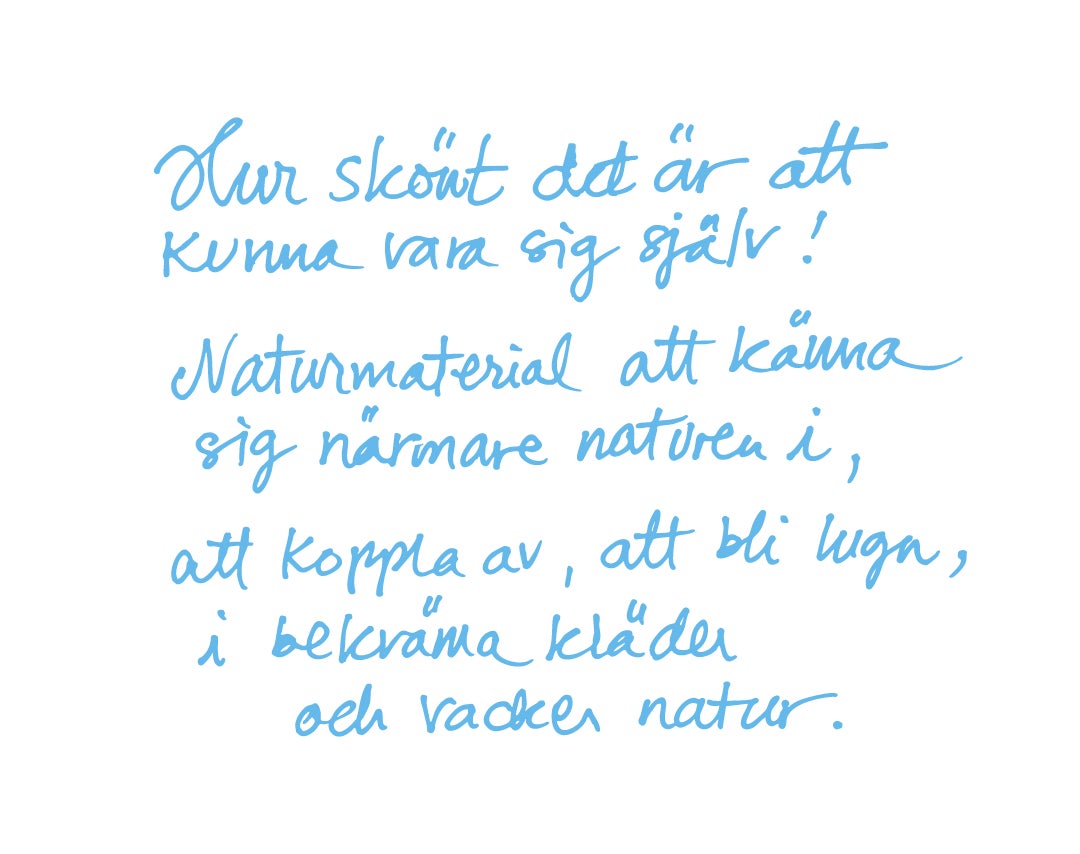 Hur skönt det är att
kunna vara sig själv!
Naturmaterial att känna
sig närmare naturen i,
att koppla av, att bli lugn,
i bekväma kläder
och vacker natur.